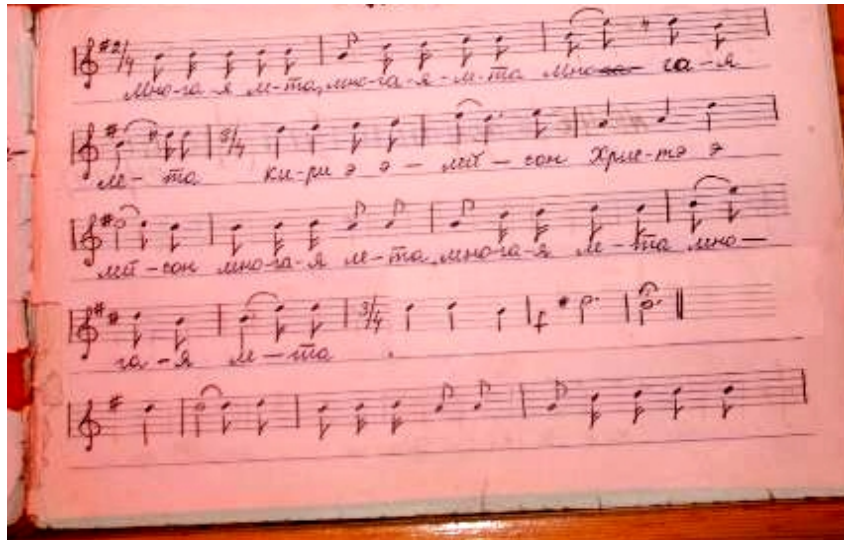 2/4
Мно-га-я ле-та, мно-га-я-ле-та мно- га-я
3/4
ле- та ки-ри э э - лей - сон Хрис-тэ э
лей - сон мно-га-я ле-та, мно-га-я ле-та мно-
га-я ле-та
3/4